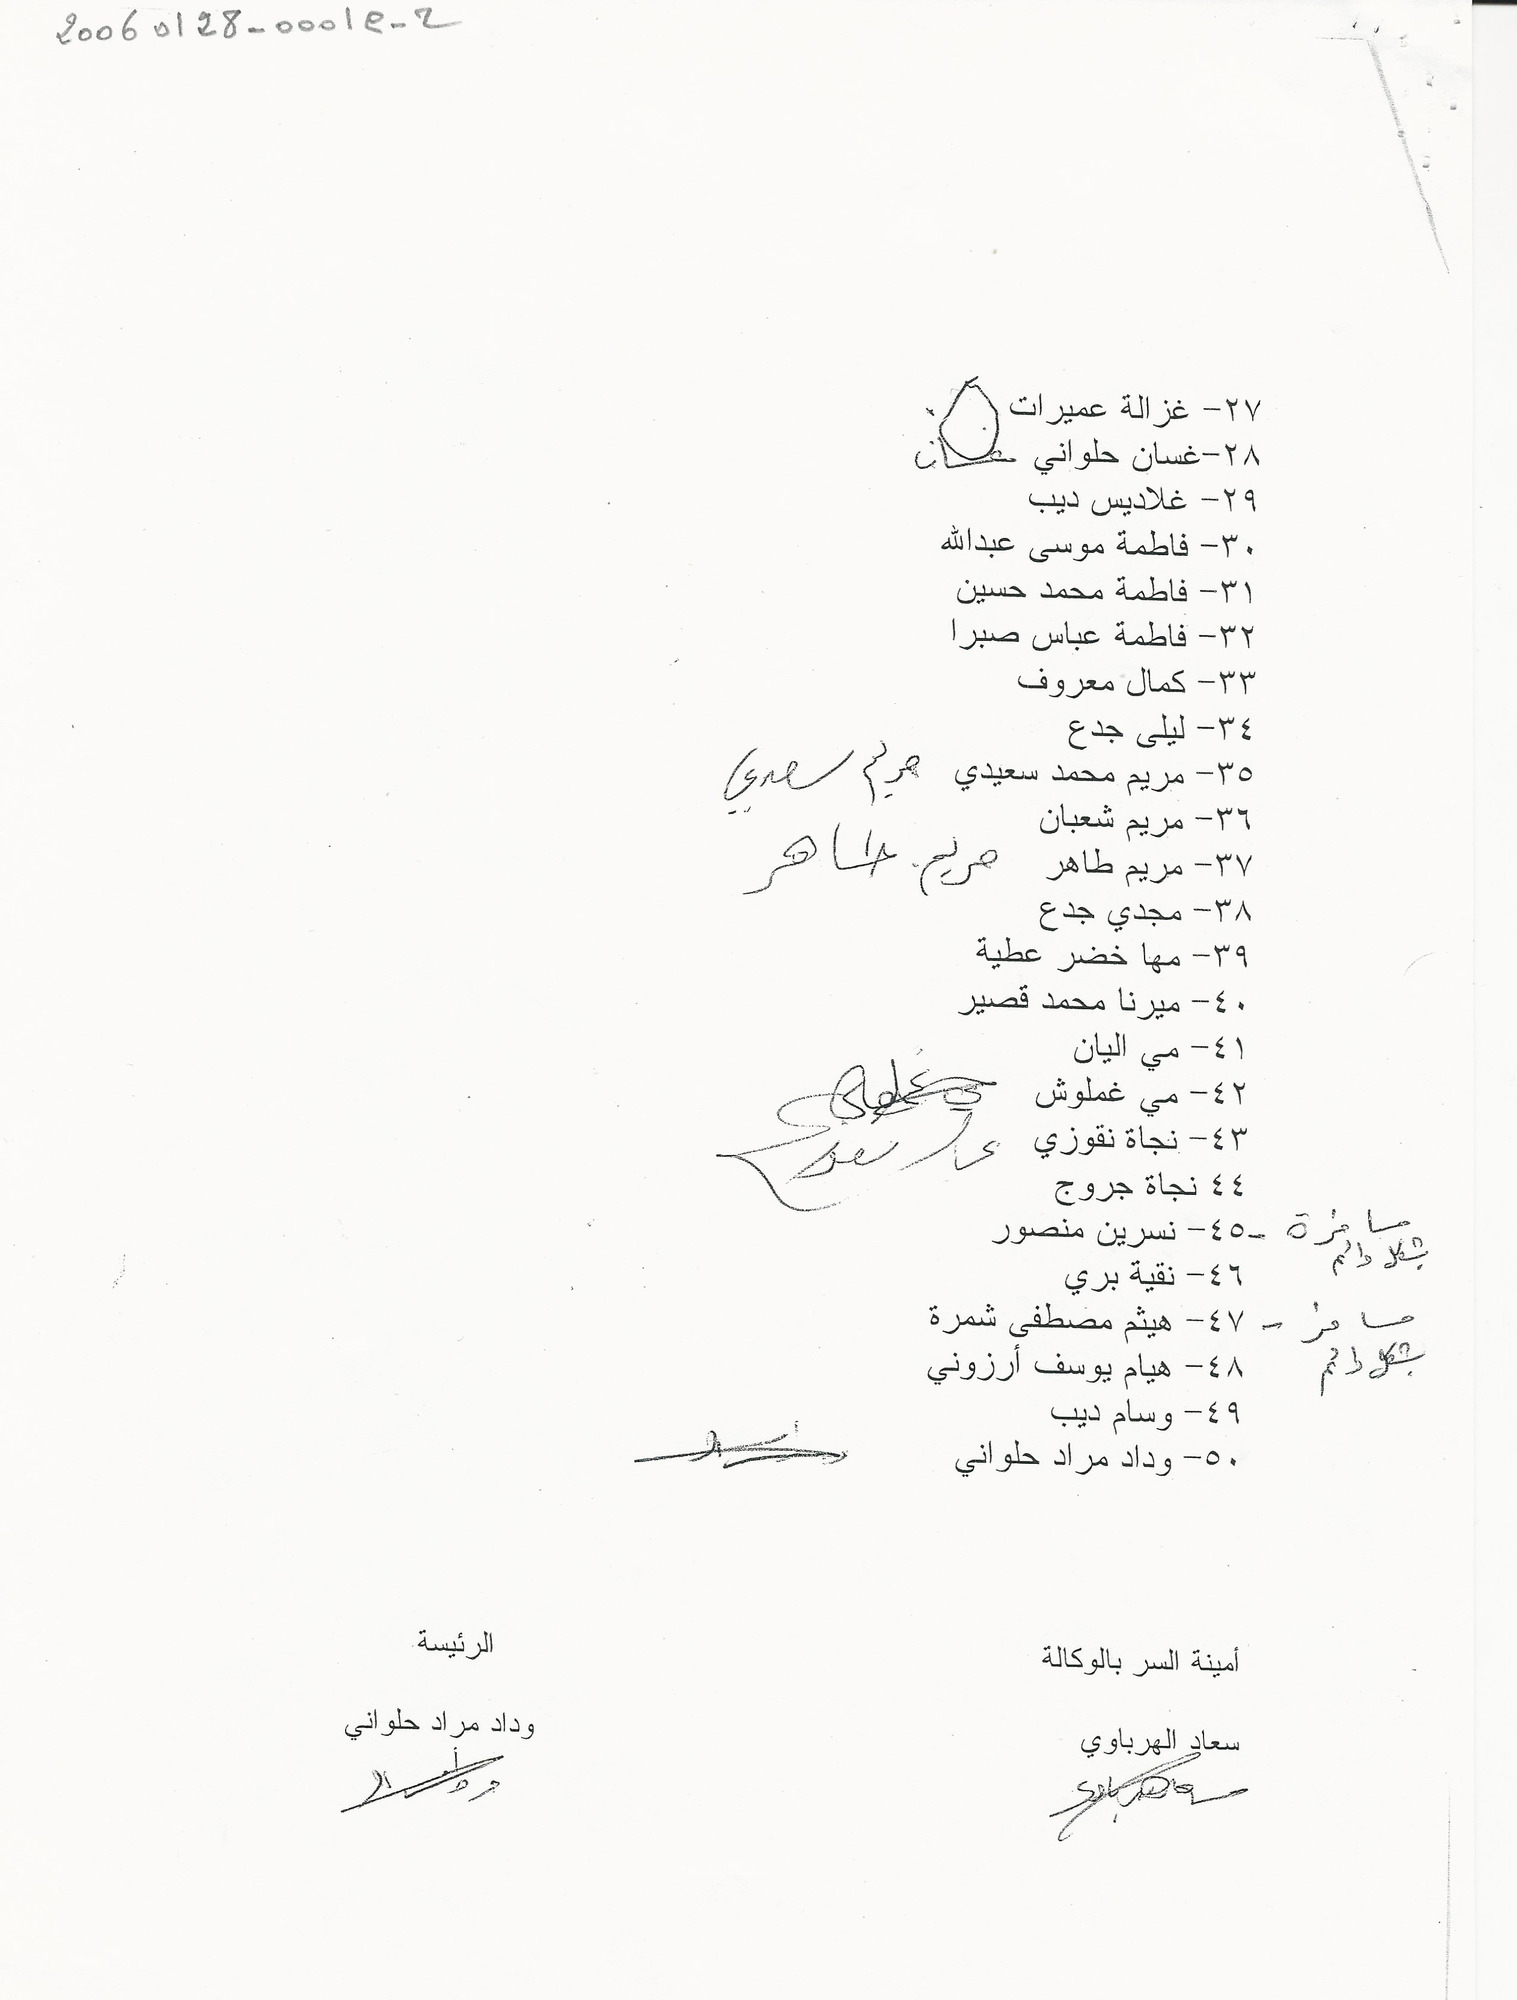 20060128-00019-2
٢٧- غزالة عميرات
٢٨-غسان حلواني غسان
٢٩- غلاديس ديب
٣٠- فاطمة موسى عبدالله
٣١- فاطمة محمد حسين
٣٢- فاطمة عباس صبرا
٣٣- كمال معروف
٣٤- ليلى جدع
٣٥- مريم محمد سعيدي مريم سعيدي
٣٦- مريم شعبان
٣٧- مريم طاهر مريم طاهر
٣٨- مجدي جدع
٣٩- مها خضر عطية
٤٠- ميرنا محمد قصير
٤١- مي اليان
٤٢- مي غملوش
٤٣- نجاة نقوزي
٤٤ نجاة جروج
مسافرة - ٤٥- نسرين منصور
بشكل دائم
٤٦- نقية بري
مسافر - ٤٧- هيثم مصطفى شمرة
بشكل دائم
٤٨- هيام يوسف أرزوني
٤٩- وسام ديب
٥٠- وداد مراد حلواني
أمينة السر بالوكالة
الرئيسة
سعاد الهرباوي
وداد مراد حلواني